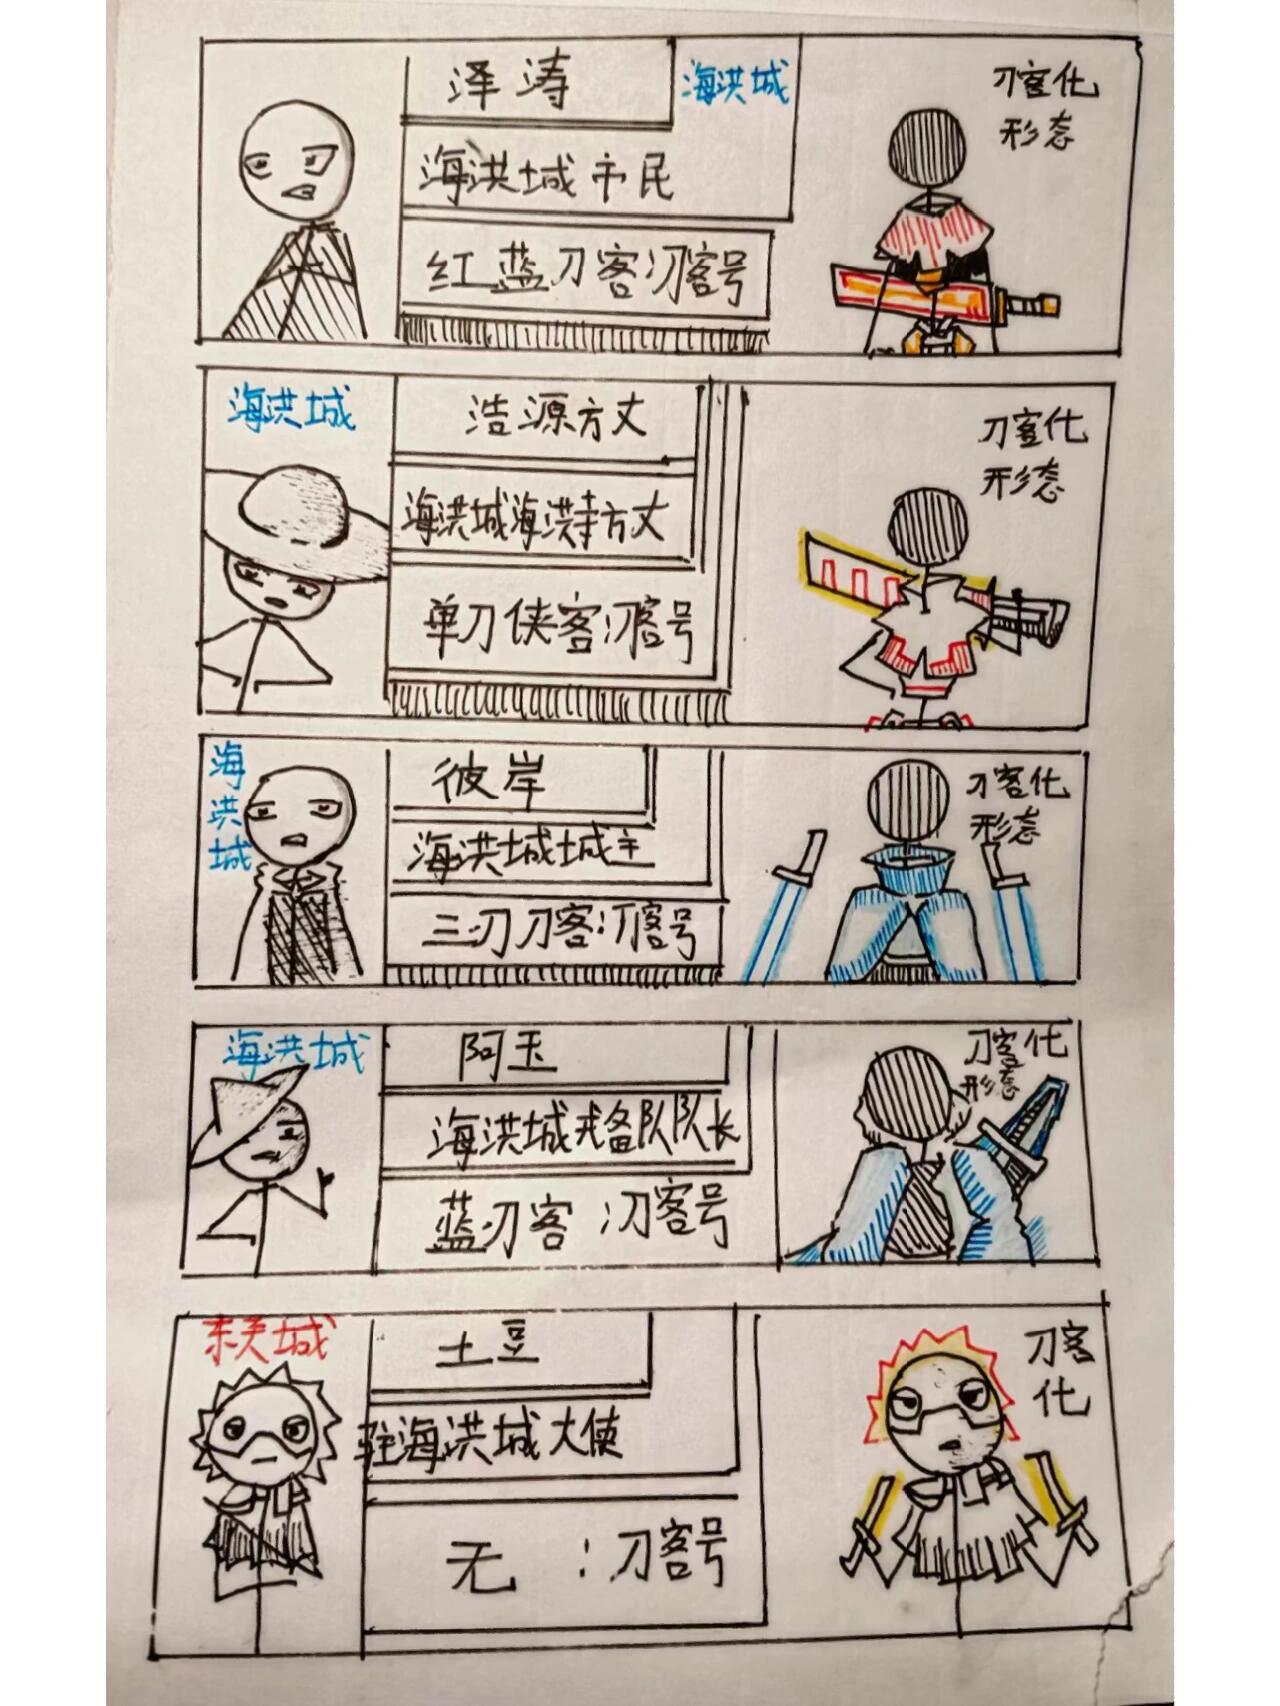 泽涛
海洪城
海洪城市民
红蓝刀客:刀客号
刀客化
形态
海洪城
浩源方丈
海洪城海洪寺方丈
单刀侠客:刀客号
刀客化
形态
海洪城
彼岸
海洪城城主
三刃刀客:刀客号
刀客化
形态
海洪城
阿玉
海洪城戒备队队长
蓝刃客:刀客号
刀客化
形态
土豆
驻海洪城大使
无:刀客号
刀客
化